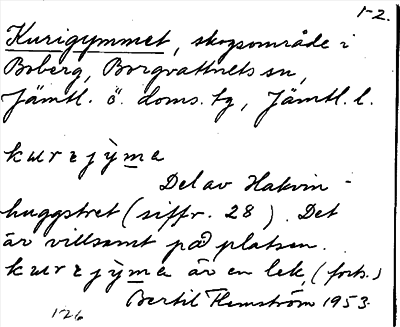 1-2.
Kurigymmet, skogsområde i
Boberg, Borgvattnets sn,
Jämtl. ö. doms. tg, Jämtl. l.
kurrɩjy̆me
Del av Hakvin-
huggstret (siffr. 28). Det
är villsamt på platsen.
kurrɩjy̆me är en lek, (forts.)
Bertil Flemström 1953.
126